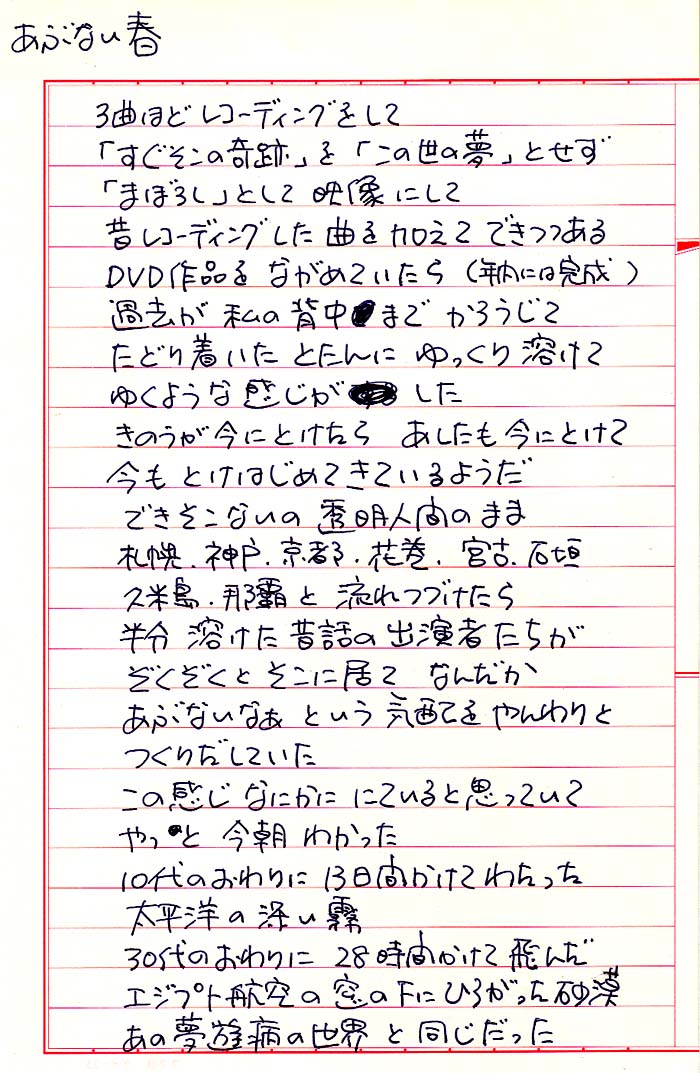 あぶない春
3曲ほどレコーディングをして
「すぐそこの奇跡」を「この世の夢」とせず
「まぼろし」として 映像にして
昔レコーディングした曲を加えて できつつある
DVD作品を ながめていたら（年内には完成）
過去が 私の背中まで かろうじて
たどり着いた とたんに ゆっくり溶けて
ゆくような感じが した
きのうが今にとけたら あしたも今にとけて
今も とけはじめてきているようだ
できそこないの 透明人間のまま
札幌．神戸．京都．花巻．宮古．石垣
久米島．那覇と 流れつづけたら
半分 溶けた昔話の出演者たちが
ぞくぞくと そこに居て なんだか
あぶないなぁ という 気配を やんわりと
つくりだしていた
この感じ なにかに にていると思っていて
やっと 今朝 わかった
10代のおわりに 13日間かけてわたった
太平洋の深い霧
30代のおわりに 28時間かけて 飛んだ
エジプト航空の窓の下にひろがった砂漠
あの夢遊病の世界と 同じだった